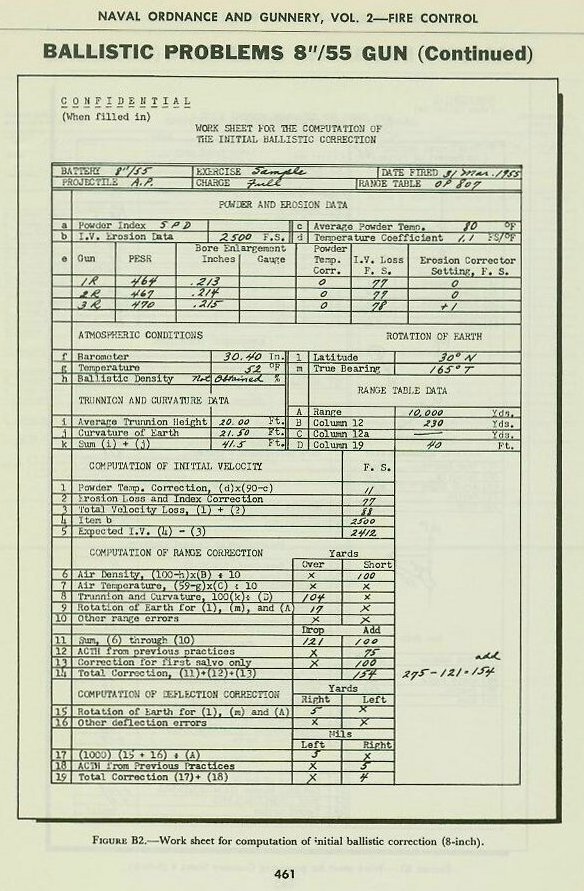 NAVAL ORDNANCE AND GUNNERY, VOL. 2—FIRE CONTROL
BALLISTIC PROBLEMS 8"/55 GUN (Continued)
CONFIDENTIAL
(When filled in)
WORK SHEET FOR THE COMPUTATION OF
THE INITIAL BALLISTIC CORRECTION
BATTERY 8"/55 EXERCISE Sample DATE FIRED 31 Mar. 1955
PROJECTILE A.P. CHARGE Full RANGE TABLE OP 807
POWDER AND EROSION DATA
a Powder Index SPD c Average Powder Temp. 80 °F
b I.V. Erosion Data 2500 F.S. d Temperature Coefficient 1.1 FS/°F
e Gun PESR Bore Enlargement Inches Gauge Powder Temp. Corr. I.V. Loss F. S. Erosion Corrector Setting, F. S.
1R 464 .213 0 77 0
2R 467 .214 0 77 0
3R 470 .215 0 78 +1
ATMOSPHERIC CONDITIONS ROTATION OF EARTH
f Barometer 30.40 In. l Latitude 30° N
g Temperature 52 °F m True Bearing 165° T
h Ballistic Density Not Obtained %
RANGE TABLE DATA
TRUNNION AND CURVATURE DATA
A Range 10,000 Yds.
i Average Trunnion Height 20.00 Ft. B Column 12 230 Yds.
j Curvature of Earth 21.50 Ft. C Column 12a — Yds.
k Sum (i) + (j) 41.5 Ft. D Column 19 40 Ft.
COMPUTATION OF INITIAL VELOCITY F. S.
1 Powder Temp. Correction, (d)x(90-c) 11
2 Erosion Loss and Index Correction 77
3 Total Velocity Loss, (1) + (2) 88
4 Item b 2500
5 Expected I.V. (4) - (3) 2412
COMPUTATION OF RANGE CORRECTION Yards
Over Short
6 Air Density, (100-h)x(B) ÷ 10 x 100
7 Air Temperature, (59-g)x(C) ÷ 10 x x
8 Trunnion and Curvature, 100(k)÷ (D) 104 x
9 Rotation of Earth for (l), (m), and (A) 17 x
10 Other range errors x x
Drop Add
11 Sum, (6) through (10) 121 100
12 ACTH from previous practices x 75
13 Correction for first salvo only x 100
14 Total Correction, (11)+(12)+(13) 154
add
275-121=154
COMPUTATION OF DEFLECTION CORRECTION Yards
Right Left
15 Rotation of Earth for (l), (m) and (A) 5 x
16 Other deflection errors x x
Mils
Left Right
17 (1000) (15 + 16) ÷ (A) 5 x
18 ACTH from Previous Practices x 5
19 Total Correction (17)+ (18) x 4
FIGURE B2.—Work sheet for computation of initial ballistic correction (8-inch).
461